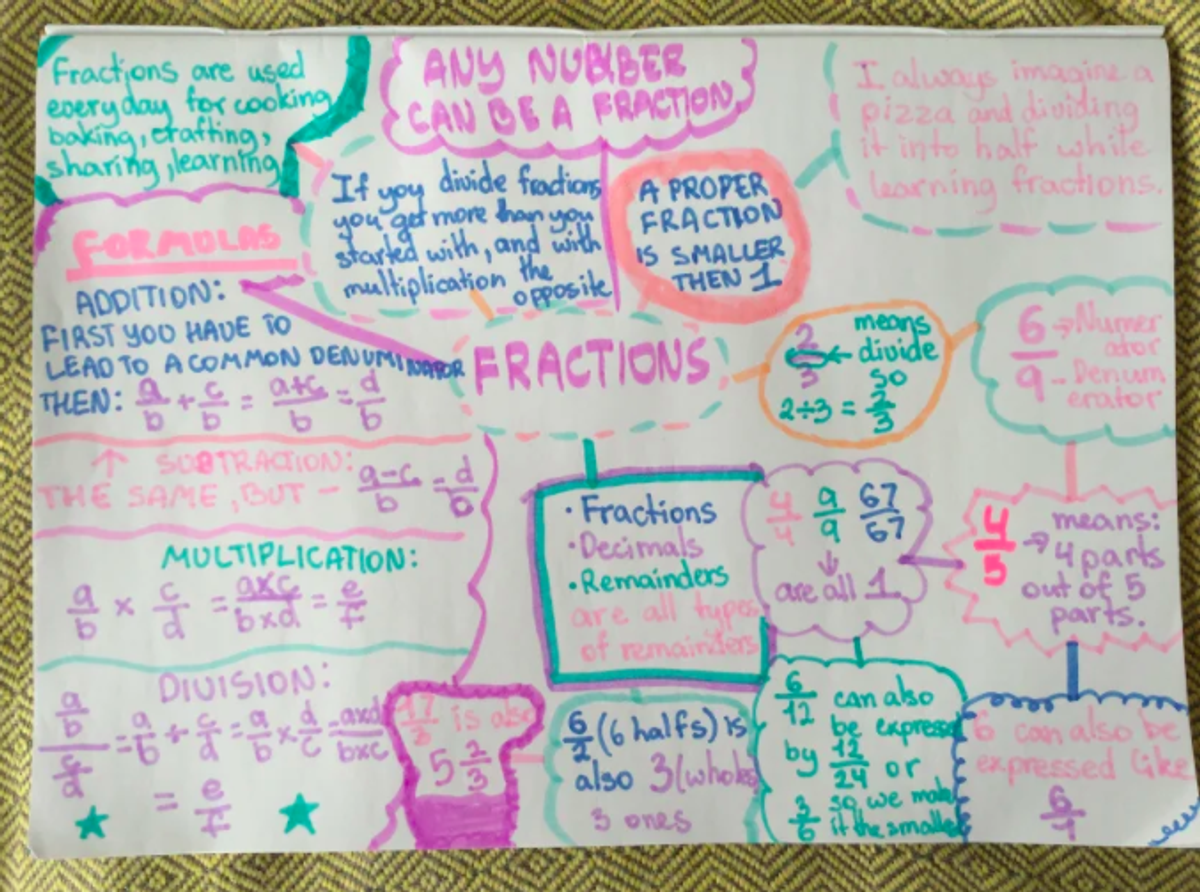 Fractions are used
everyday for cooking
baking, crafting,
sharing, learning
ANY NUMBER
CAN BE A FRACTION
I always imagine a
pizza and dividing
it into half while
learning fractions.
If you divide fractions
you get more than you
started with, and with
multiplication the
opposite
A PROPER
FRACTION
IS SMALLER
THEN 1
FORMULAS
ADDITION:
FIRST YOU HAVE TO
LEAD TO A COMMON DENUMINATOR
THEN: a/b + c/b = a+c/b = d/b
↑ SUBTRACTION:
THE SAME, BUT - a-c/b = d/b
MULTIPLICATION:
a/b × c/d = axc/bxd = e/f
DIVISION:
a/b / c/d = a/b ÷ c/d = a/b × d/c = axd/bxc
= e/f
FRACTIONS
2/3 ← means
divide
so
2÷3 = 2/3
6 → Numer
ator
9 - Denum
erator
• Fractions
• Decimals
• Remainders
are all types
of remainders
4/4 9/9 67/67
↓
are all 1
4/5 → means:
4 parts
out of 5
parts.
17/3 is also
5 2/3
6/2 (6 halfs) is
also 3 (wholes
3 ones
6/12 can also
be expressed
by 12/24 or
3/6 so we make
it the smalles
6 can also be
expressed like
6/1